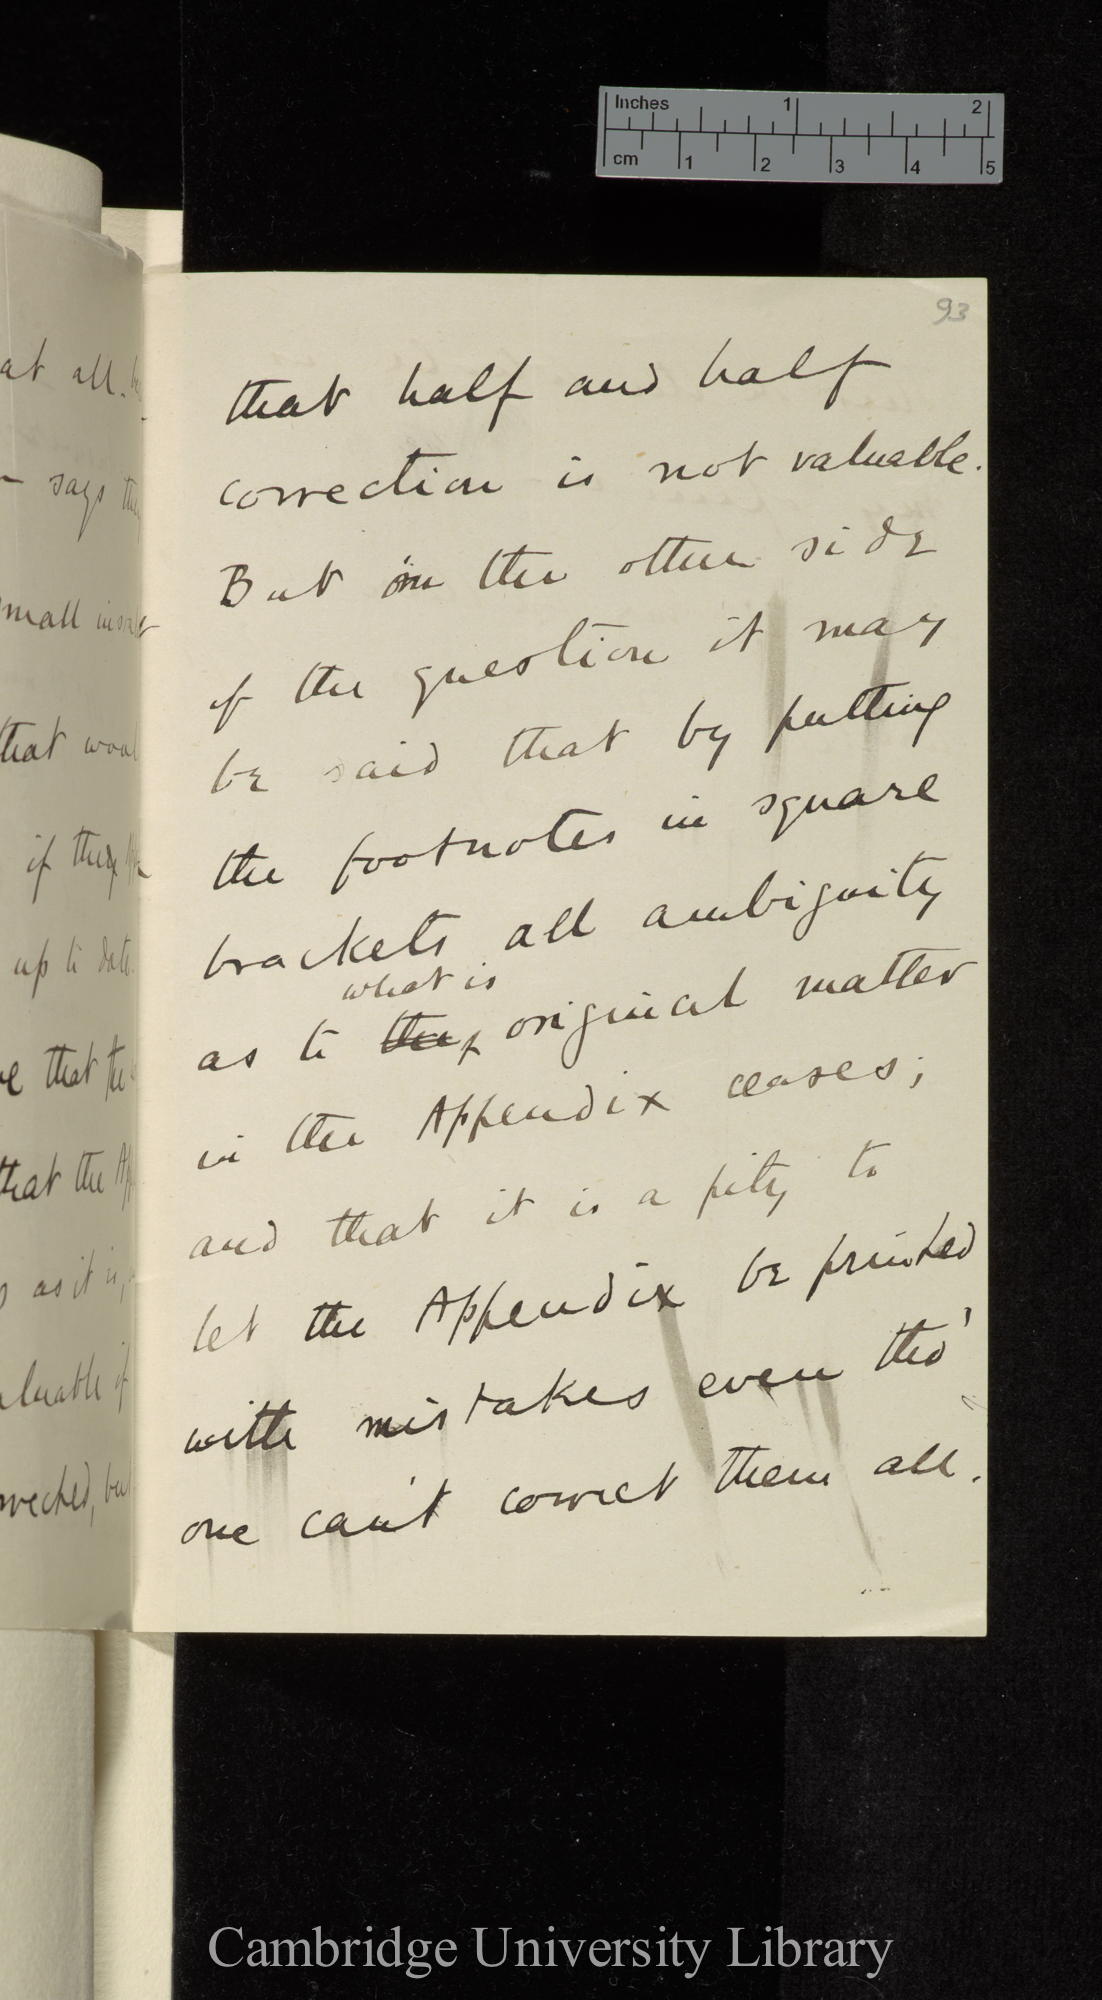 Inches 1 2
cm 1 2 3 4 5
93
that half and half
correction is not valuable.
But on the other side
of the question it may
be said that by putting
the footnotes in square
brackets all ambiguity
what is
as to the original matter
in the Appendix ceases;
and that it is a pity to
let the Appendix be printed
with mistakes even tho'
one can't correct them all.
at all.
says
small
that
if they
up to date
that the
that the
as it is,
if
Cambridge University Library